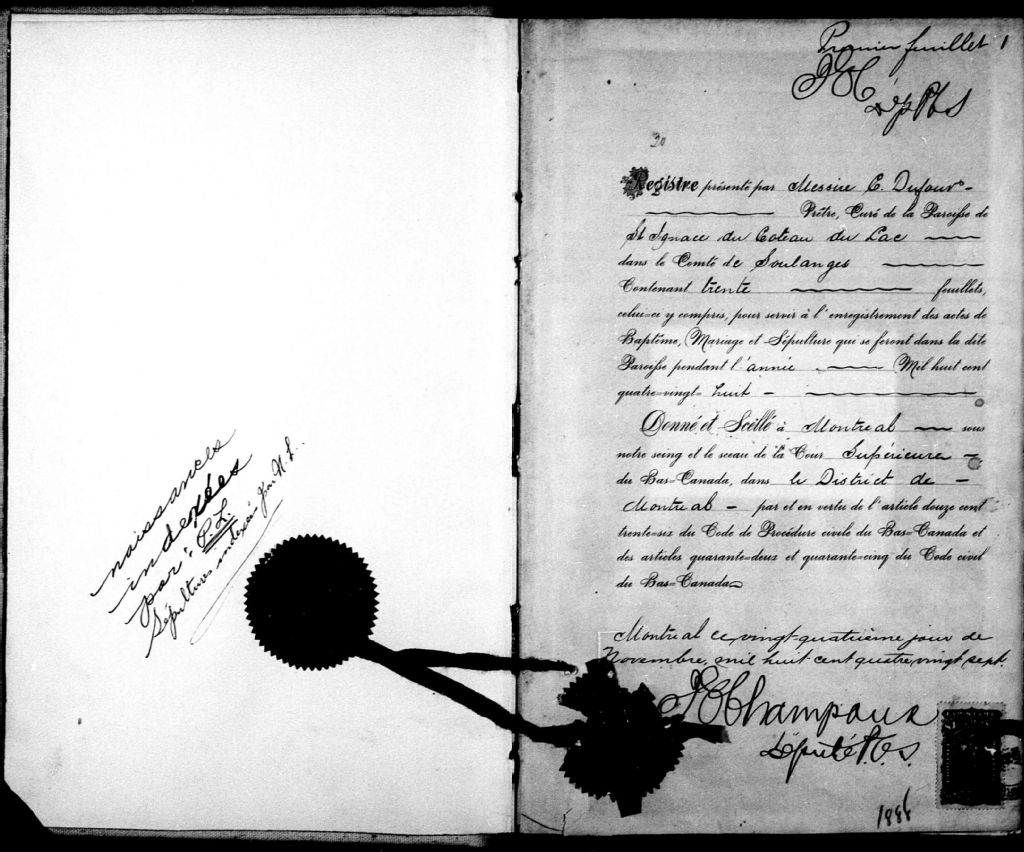 naissances
indexées
par C. L.
Sépultures indexé par N. L.
Premier feuillet 1
Dép P C S
30
Registre présenté par Messire C. Dufour
Prêtre, Curé de la Paroisse de
St Ignace du Coteau du Lac
dans le Comté de Soulanges
Contenant trente feuillets,
celui-ci y compris, pour servir à l'enregistrement des actes de
Baptême, Mariage et Sépulture qui se feront dans la dite
Paroisse pendant l'année Mil huit cent
quatre-vingt-huit
Donné et Scellé à Montreal sous
notre seing et le sceau de la Cour Supérieure
du Bas-Canada, dans le District de
Montreal par et en vertu de l'article douze cent
trente-six du Code de Procédure civile du Bas-Canada et
des articles quarante-deux et quarante-cinq du Code civil
du Bas-Canada
Montreal ce vingt-quatrième jour de
Novembre, mil huit cent quatre vingt sept.
Champoux
Député P. C. S.
1888